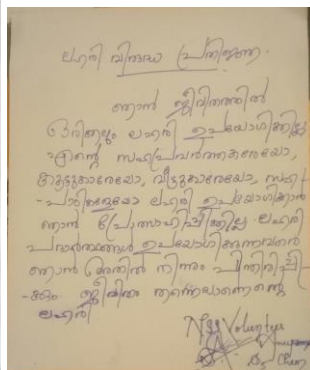 ലഹരി വിരുദ്ധ പ്രതിജ്ഞ.
ഞാൻ ജീവിതത്തിൽ
ഒരിക്കലും ലഹരി ഉപയോഗിക്കില്ല
എന്റെ സഹപ്രവർത്തകരേയോ,
കൂട്ടുകാരേയോ, വീട്ടുകാരേയോ, സഹ-
-പാഠികളേയോ ലഹരി ഉപയോഗിക്കാൻ
ഞാൻ പ്രോത്സാഹിപ്പിക്കില്ല ലഹരി
പദാർത്ഥങ്ങൾ ഉപയോഗിക്കുന്നവരെ
ഞാൻ അതിൽ നിന്നും പിന്തിരിപ്പി-
-ക്കും ജീവിതം തന്നെയാണെന്റെ
ലഹരി
NSS